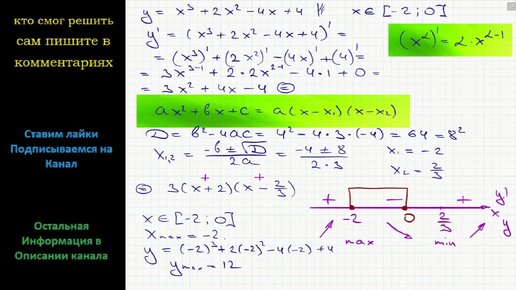 кто смог решить
сам пишите в
комментариях
Ставим лайки
Подписываемся на
Канал
Остальная
Информация в
Описании канала
y = x³ + 2x² - 4x + 4 x ∈ [-2 ; 0]
y' = (x³ + 2x² - 4x + 4)' =
= (x³)' + (2x²)' - (4x)' + (4)' =
= 3x³⁻¹ + 2·2x²⁻¹ - 4·1 + 0 =
= 3x² + 4x - 4 ⊜
(x^α)' = α·x^(α-1)
ax² + bx + c = a(x - x₁)(x - x₂)
D = b² - 4ac = 4² - 4·3·(-4) = 64 = 8²
x₁,₂ = (-b ± √D)/(2a) = (-4 ± 8)/(2·3)
x₁ = -2
x₂ = 2/3
+ +
⊜ 3(x+2)(x - 2/3)
x ∈ [-2 ; 0]
x max = -2
y = (-2)³ + 2(-2)² - 4(-2) + 4
y max = 12
+ - + y'
-2 0 2/3 x
max min y